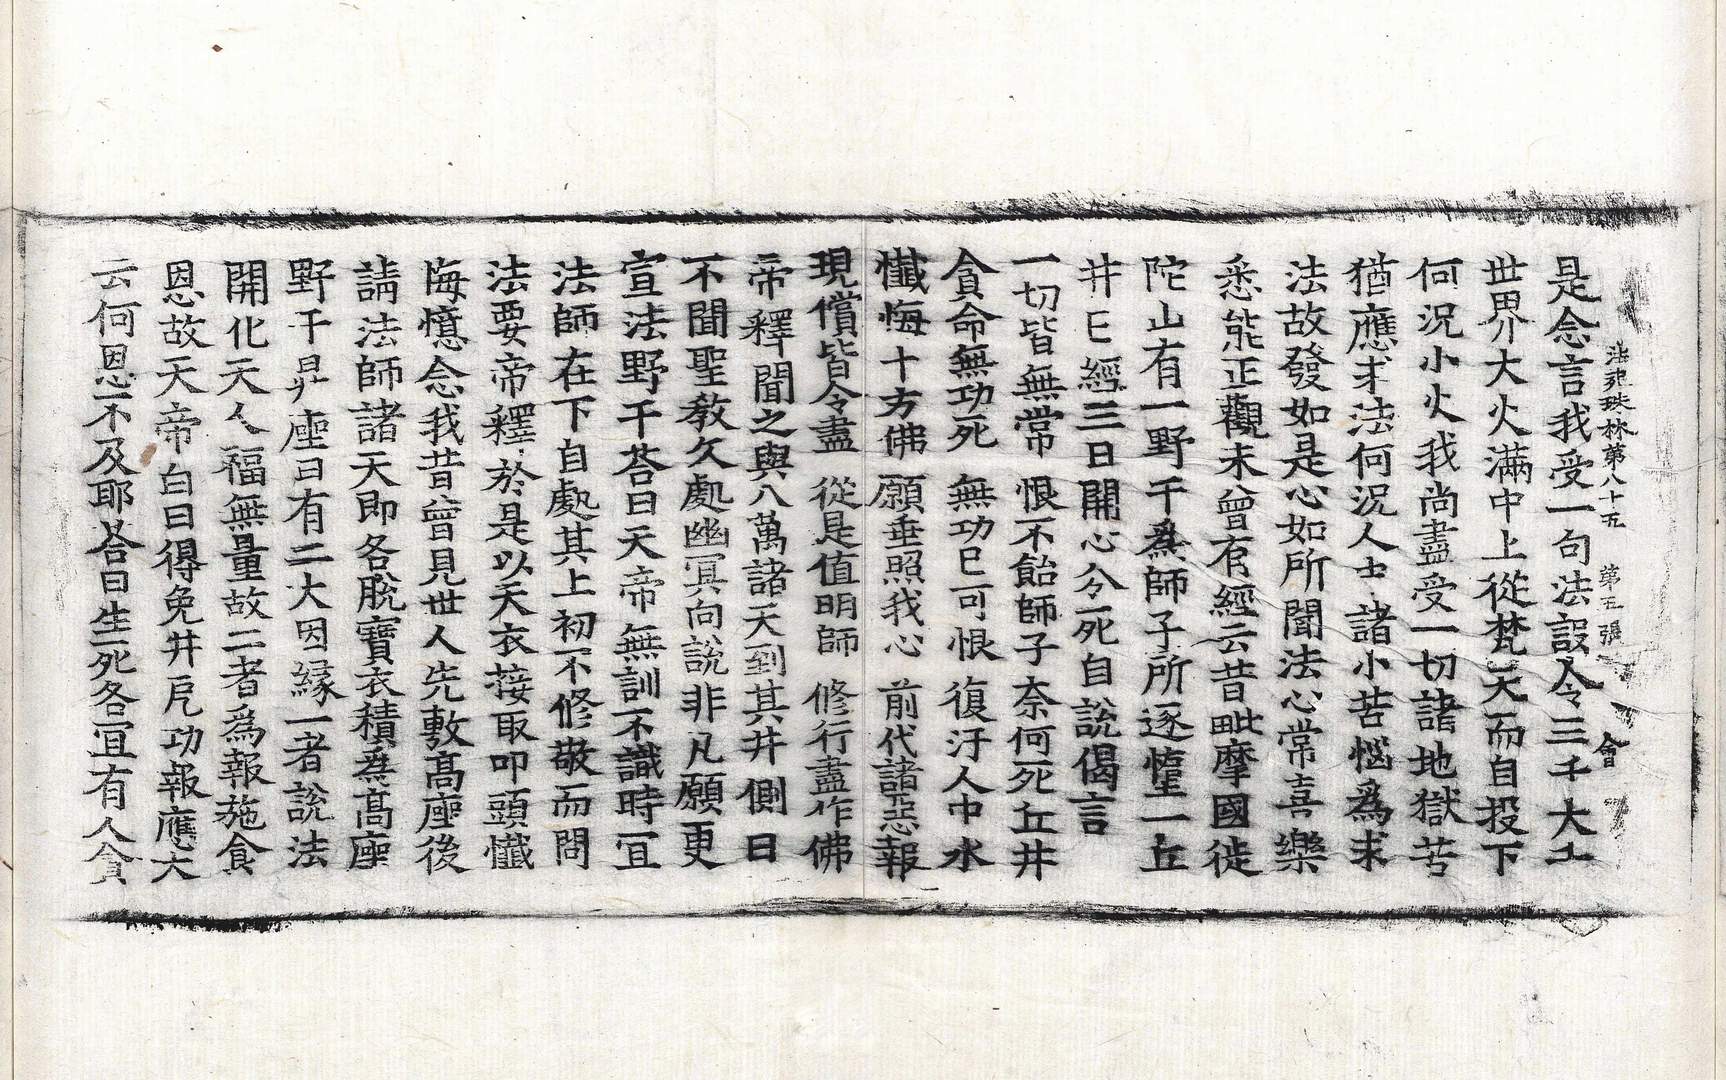 法苑珠林第八十五　第五張　會
是念言我受一句法設令三千大土
世界大火滿中上從梵天而自投下
何況小火我尚盡受一切諸地獄苦
猶應求法何況人士諸小苦惱爲求
法故發如是心如所聞法心常喜樂
悉能正觀未曾有經云昔毗摩國徙
陀山有一野干爲師子所逐墮一丘
井已經三日開心分死自說偈言
一切皆無常　恨不飴師子奈何死丘井
貪命無功死　無功已可恨　復汙人中水
懺悔十方佛　願垂照我心　前代諸惡報
現償皆令盡　從是値明師　修行盡作佛
帝釋聞之與八萬諸天到其井側曰
不聞聖教久處幽冥向說非凡願更
宣法野干荅曰天帝無訓不識時宜
法師在下自處其上初不修敬而問
法要帝釋於是以天衣接取叩頭懺
悔憶念我昔曾見世人先敷高座後
請法師諸天即各脫寶衣積爲高座
野干昇座曰有二大因緣一者說法
開化天人福無量故二者爲報施食
恩故天帝白曰得免井戹功報應大
云何恩不及耶荅曰生死各宜有人貪